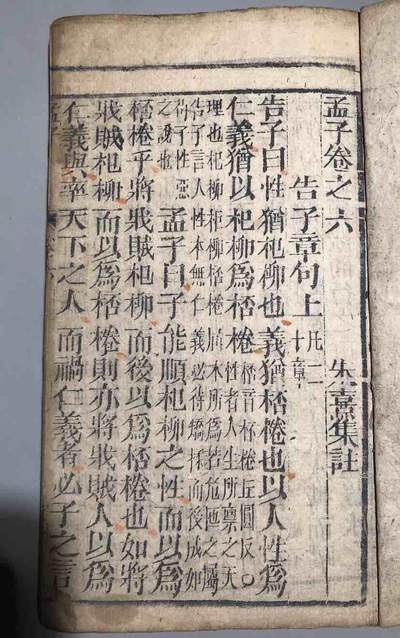 孟子卷之六　朱熹集註
告子章句上　凡二十章
告子曰性猶杞柳也義猶桮棬也以人性爲
仁義猶以杞柳爲桮棬桮音杯棬丘圓反○性者人生所禀之天
理也杞柳柜柳桮棬屈木所爲若卮匜之屬
告子言人性本無仁義必待矯揉而後成如
荀子性惡之說也孟子曰子能順杞柳之性而以爲
桮棬乎將戕賊杞柳而後以爲桮棬也如將
戕賊杞柳而以爲桮棬則亦將戕賊人以爲
仁義與率天下之人而禍仁義者必子之言
孟子